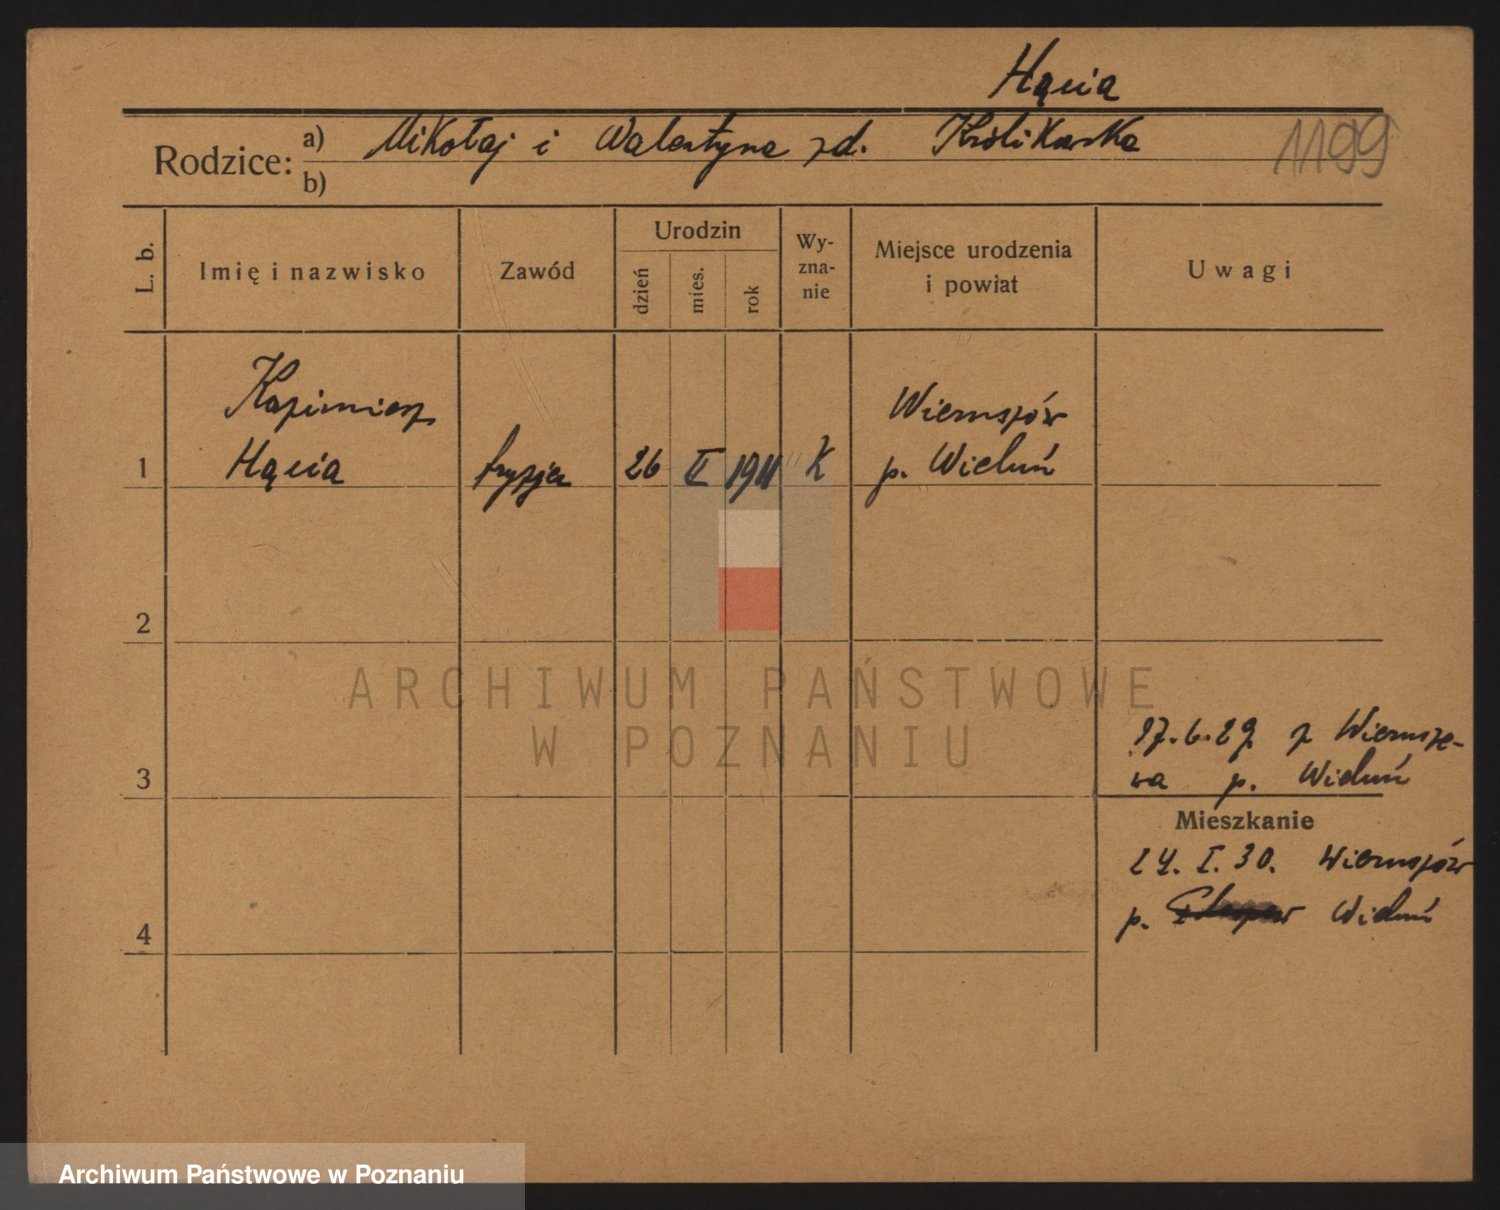 Hącia
Rodzice: a) Mikołaj i Walentyna zd. Królikowska
b)
1199
L. b.
Imię i nazwisko
Zawód
Urodzin
dzień
mies.
rok
Wy-
zna-
nie
Miejsce urodzenia
i powiat
Uwagi
Kazimierz
Wieruszów
1 Hącia fryzjer 26 II 1911 K p. Wieluń
2
ARCHIWUM PAŃSTWOWE
W POZNANIU
17.6.29 z Wierusze-
3 wa p. Wieluń
Mieszkanie
24. I. 30. Wieruszów
4 p. Wieluń
Archiwum Państwowe w Poznaniu